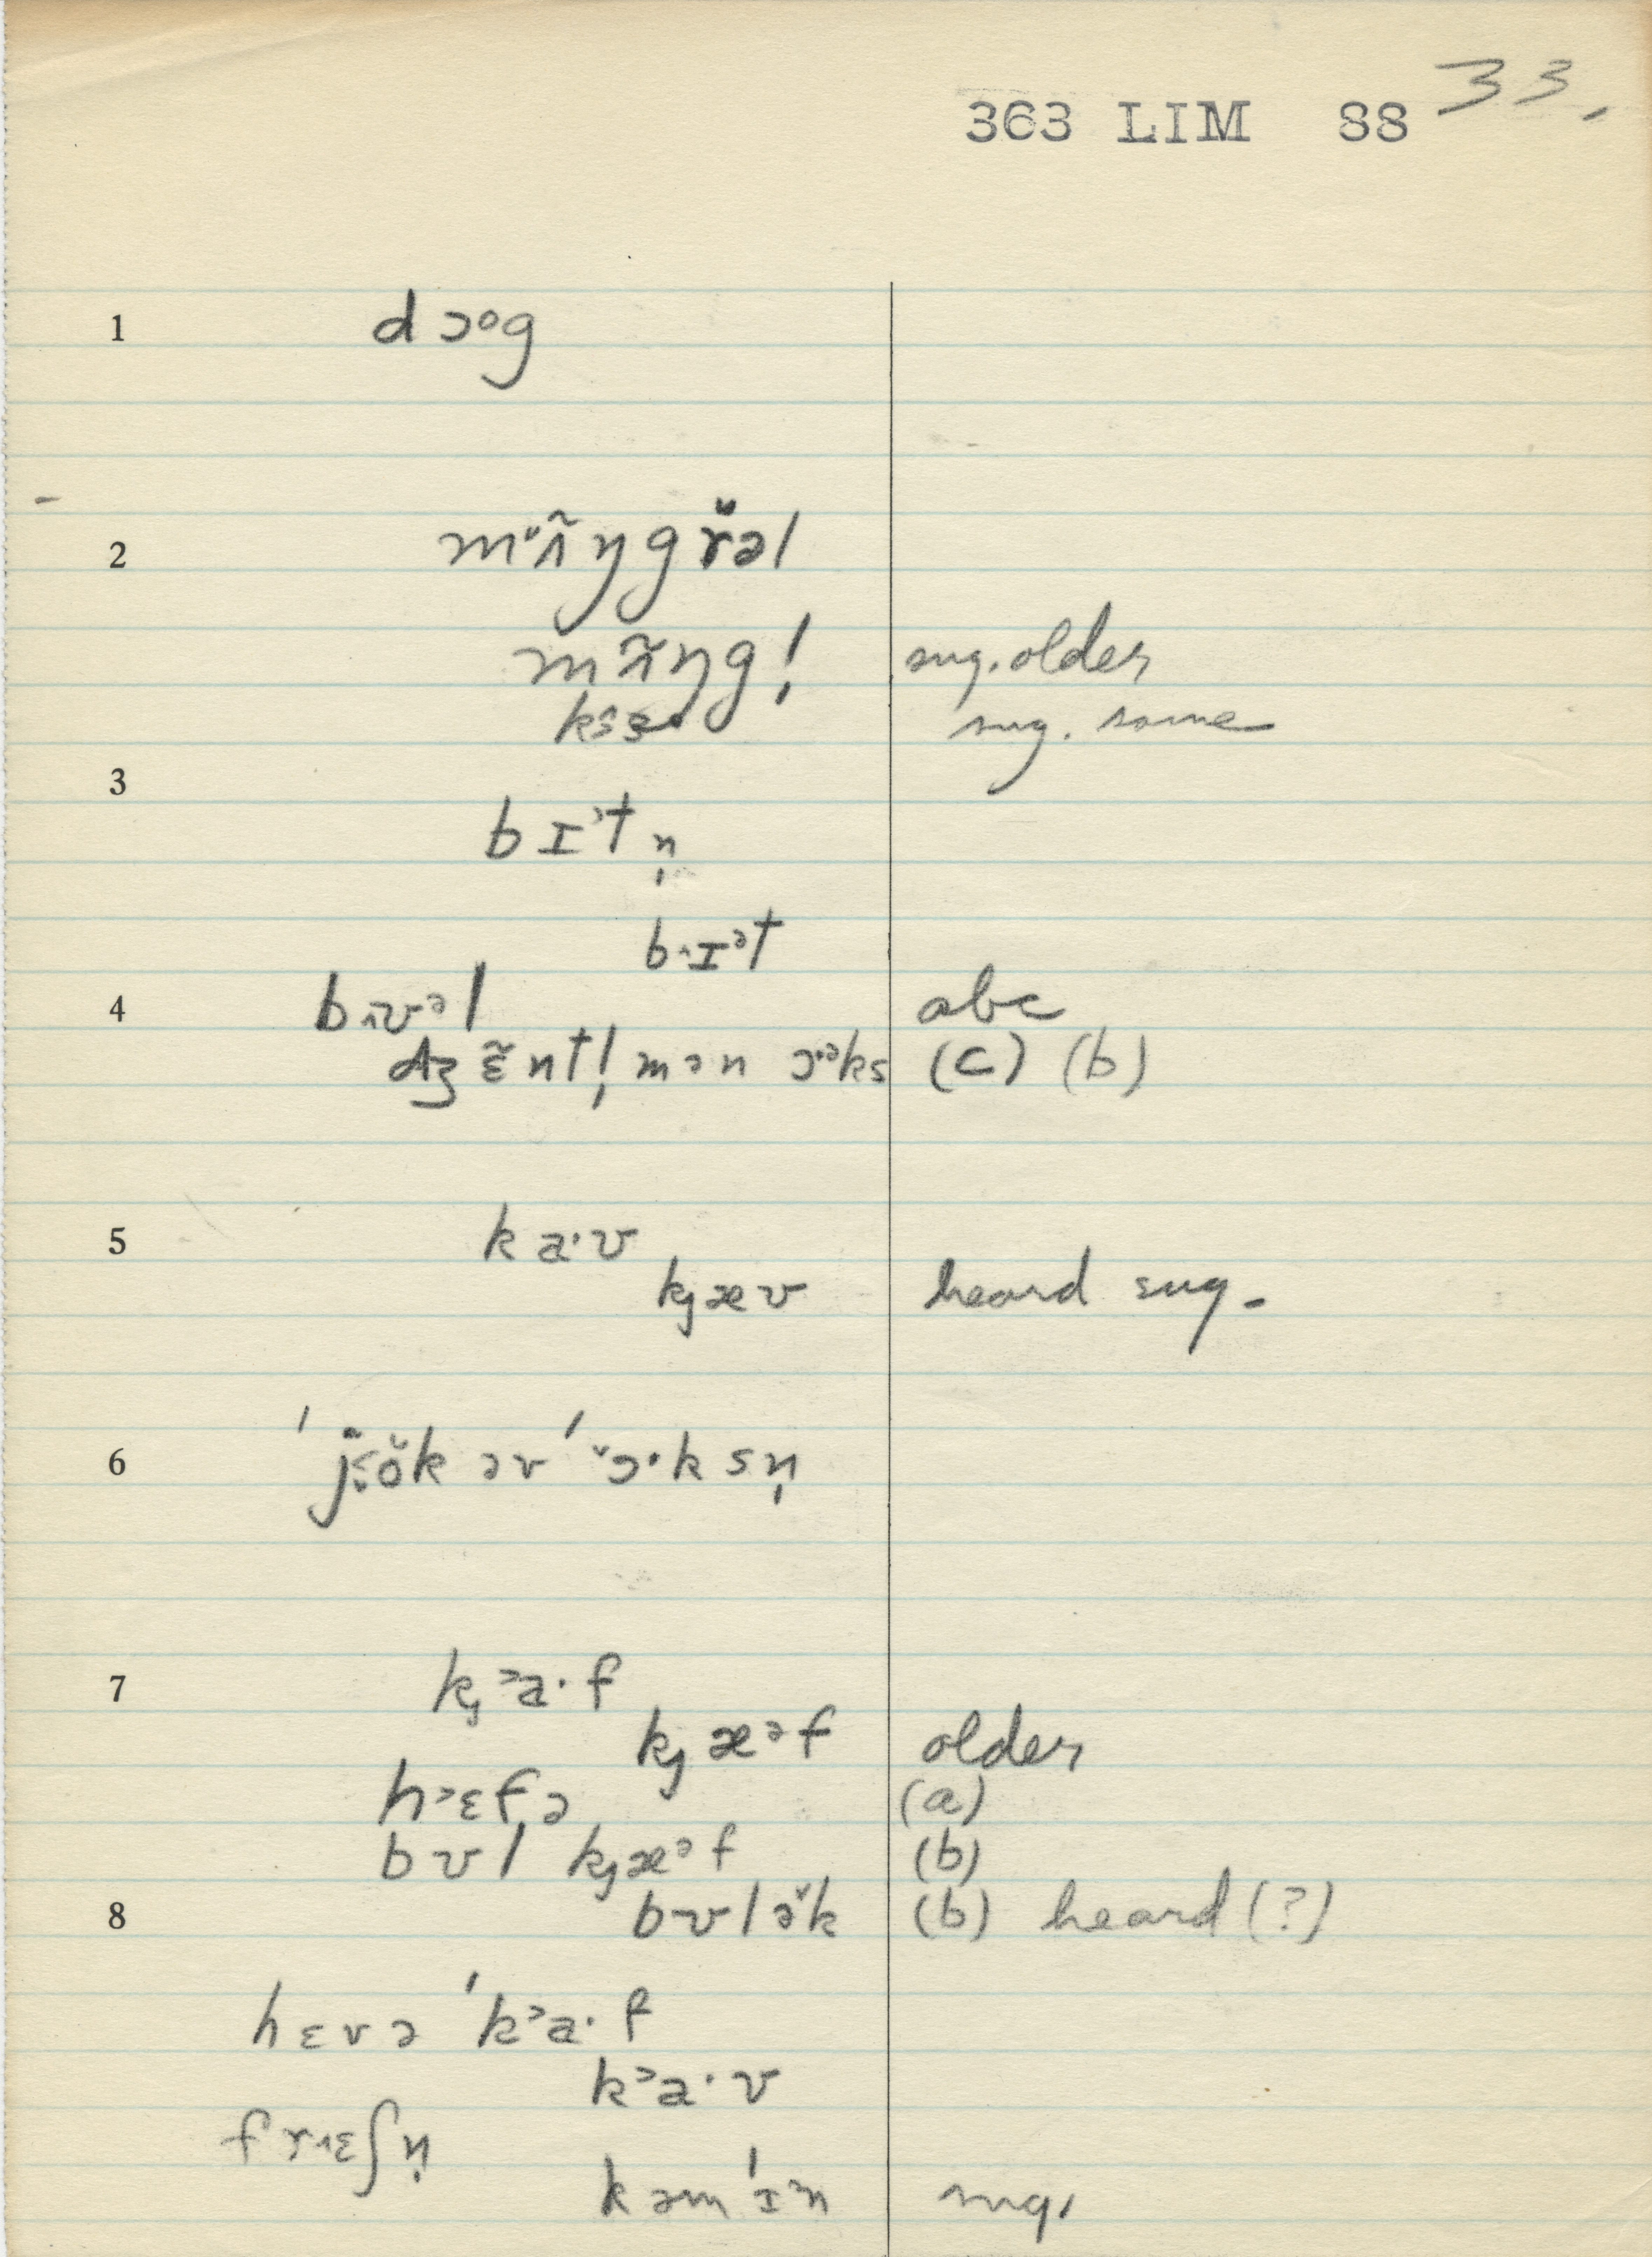 363 LIM 88 33.
1 d ɔᵒg
2 mʌ̃ŋgrəl
mʌ̃ŋg! sug. older
sug. same
3
bɪᵊtn̩
b˄ɪᵊt
4 b˄ʊᵊl abc
dʒɛ̃ntl̩mən ɔᵊks (c) (b)
5 ka·ʊ
kj æʊ heard sug.
6 ˈjok əv ˈɔ·ksn̩
7 kj ˃a·f
kj æᵊf older
h˃ɛfə (a)
bʊl kj æᵊf (b)
8 bʊlək (b) heard (?)
hɛvə ˈk˃a·f
k˃a·v
fr˄ɛʃn̩
kəmˈɪn sug.